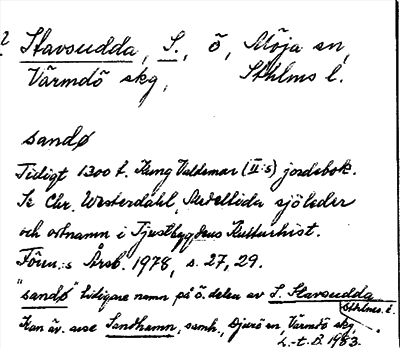 2 Stavsudda, S., ö, Möja sn,
Värmdö skg, Sthlms l.
sandø
Tidigt 1300 t. Kung Valdemar (II:s) jordebok.
Se Chr. Westerdahl, Medeltida sjöleder
och ortnamn i Tjustbygdens Kulturhist.
Fören:s Årsb. 1978, s. 27, 29.
"sandø" tidigare namn på ö. delen av S. Stavsudda
Sthlms. l.
Kan äv. avse Sandhamn, samh., Djurö sn, Värmdö skg,
1983.